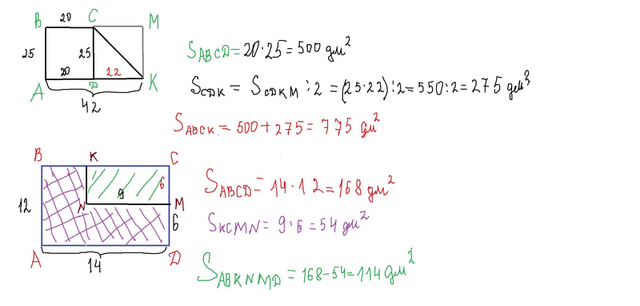 B 20 C M
25 25
20 22
A D K
42
S_ABCD = 20·25 = 500 дм²
S_CDK = S_CDKM : 2 = (25·22) : 2 = 550 : 2 = 275 дм³
S_ABCK = 500 + 275 = 775 дм²
B K C
6
9
12 N M
6
A D
14
S_ABCD = 14·12 = 168 дм²
S_KCMN = 9·6 = 54 дм²
S_ABKNMD = 168-54 = 114 дм²